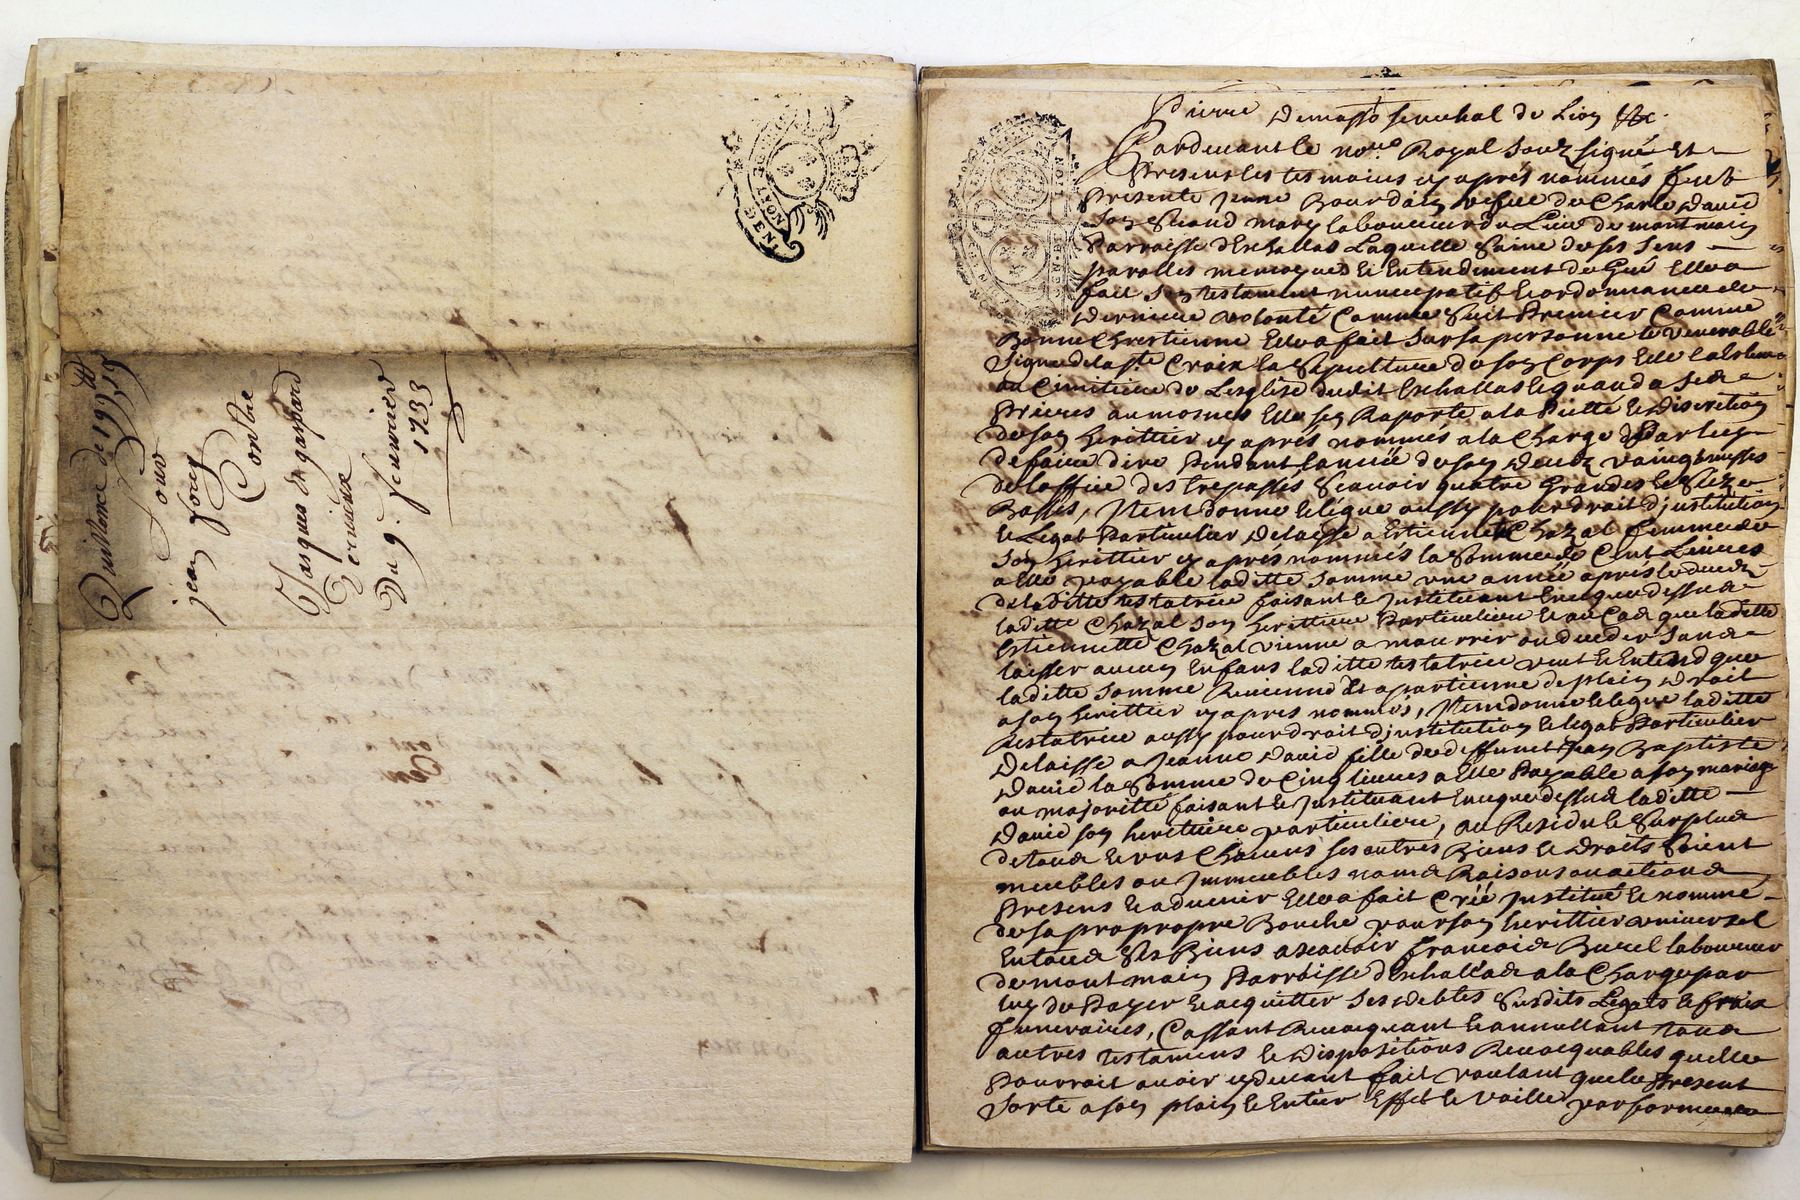 Quittance de 197 lt 15 s
Pour
jean forey
Contre
Jacques et gaspard
Verrieux
Du 9e. feuvrier
1733
DE LYON
GEN
Pierre Demasso seneschal de Lion &c.
Pardevant le nore. Royal souzsigné et
Presens les tesmoins cy aprés nommés fust
Presente Jeanne Bourdin vefue de Charle David
son second mary laboureur du Lieu de montmain
Parroisse d'Eschallas Laquelle saine de ses sens
parolles memoyre et Entendement de Gré Elle a
fait son testament nuncupatif et ordonnance de
Derniere volonté Comme suit Premier Comme
Bonne Chrestienne Elle a fait sur sa personne le venerable
signe de la ste. Croix la sepulture de son Corps Elle
au Cimitiere de L'esglise dudit Eschallas et quand a ses
Prieres aumosnes Elle sen Raporte a la Piette et Discretion
de son herittier cy aprés nommés a la Charge Par luy
de faire dire Pendant l'année de son Decez vaingt messes
de loffice des trepassés scauoir quatre Grandes et seize
Basses, Item donne et légue aussy pour droit d'institution
et Legat Particulier Delaisse a Estiennette Chazal femme de
son herittier cy aprés nommés la somme de Cent Liures
a Elle payable laditte somme une année aprés le decez
de laditte testatrice faisant et Instituant En ce que dessus
laditte Chazal son herittiere Particuliere et au Cas que laditte
Estiennette Chazal vienne a mourrir ou deceder sans
laisser aucun Enfans laditte testatrice veut et Entend que
laditte somme Revienne et apartienne de plein Droit
a son herittier cy apres nommés, Item donne et legue laditte
testatrice aussy pour droit d'institution et legat Particulier
Delaisse a Jeanne David fille de deffunct Jean Baptiste
David la somme de Cinq liures a Elle Payable a son mariage
ou majoritté faisant et Instituant En ce que dessus laditte
David son herittiere particuliere, au Residu et surplus
de tous et uns Chacuns ses autres Biens et Droits soient
meubles ou Immeubles noms Raisons ou actions
Presens et aduenir Elle a fait Créé Institué et nommé
de sa propre Bouche pour son herittier universel
En tous ses Biens ascavoir francois Burel laboureur
de montmain Parroisse d'Eschallas a la Charge par
luy de Payer et acquitter ses debtes susdits Legats et frais
funeraires, Cassant Revocquant et annullant tous
autres testamens et Dispositions Revocquables quelle
Pourroit avoir cy devant fait voulant que le Present
sorte a son plain et Entier Effet et vaille par forme de